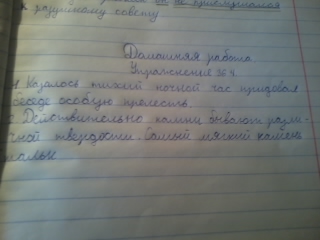 он не прислушался
к разумному совету
Домашняя работа
Упражнение 364
Казалось тихий ночной час придавал
беседе особую прелесть.
Действительно камни бывают разли-
чной твердости. Самый мягкий камень
тальк